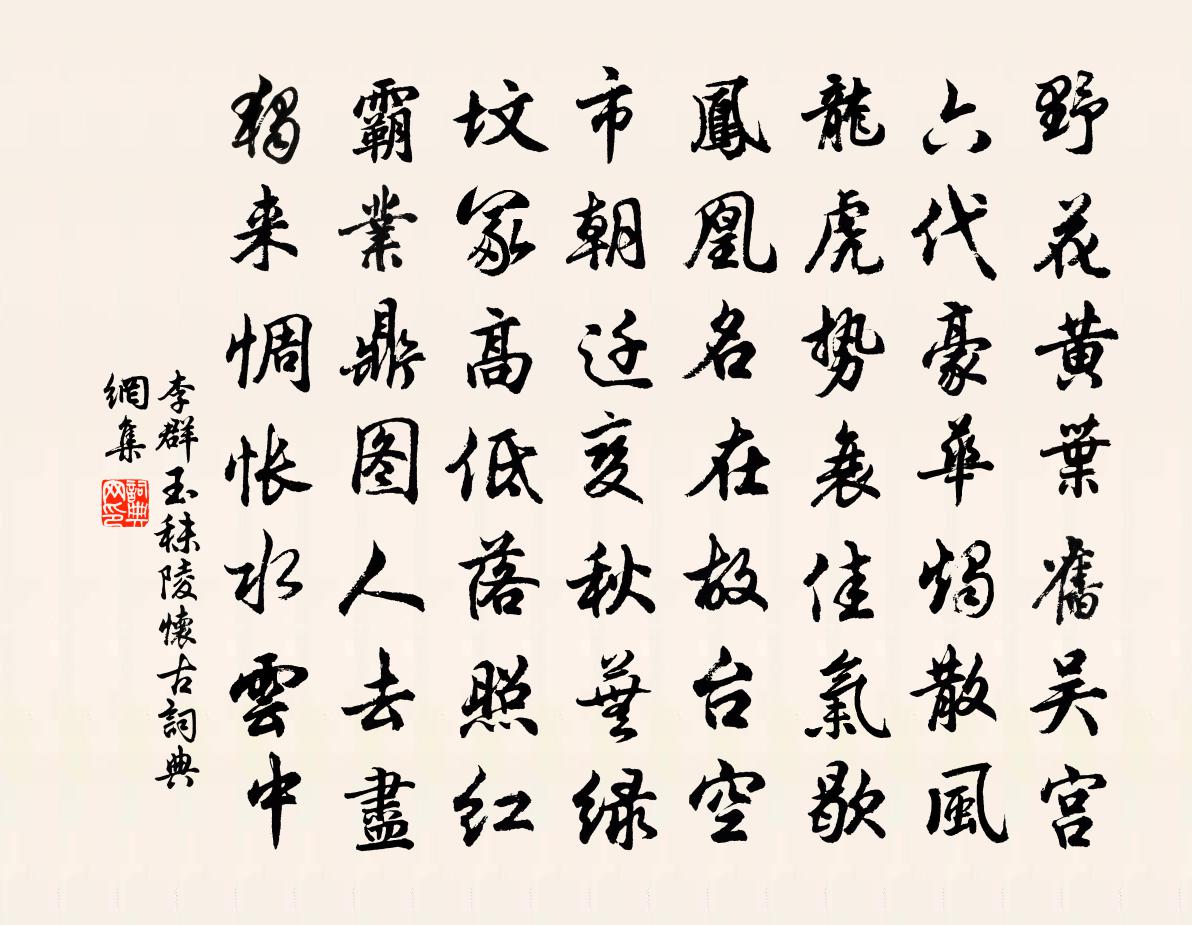 野花黄葉舊吴宫
六代豪華燭散風
龍虎勢衰佳氣歇
鳳凰名在故台空
市朝迁变秋蕪绿
坟冢高低落照红
霸業鼎图人去盡
獨来惆怅水雲中
李群玉秣陵懷古詞典
網集
詞典
网印